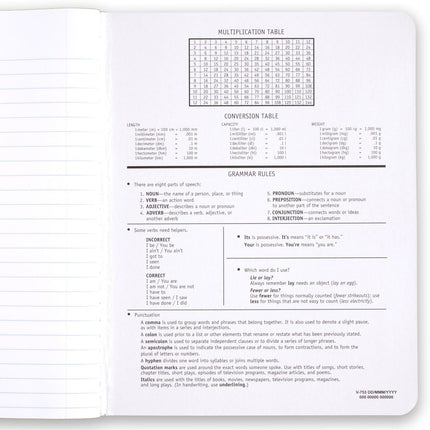 MULTIPLICATION TABLE
1 2 3 4 5 6 7 8 9 10 11 12
2 4 6 8 10 12 14 16 18 20 22 24
CONVERSION TABLE
LENGTH
CAPACITY
WEIGHT
1 meter (m) = 100 cm = 1,000 mm
1 liter (l) = 100 cl = 1,000 ml
1 gram (g) = 100 cg = 1,000 mg
GRAMMAR RULES
• There are eight parts of speech:
1. NOUN—the name of a person, place, or thing
2. VERB—an action word
3. ADJECTIVE—describes a noun or pronoun
4. ADVERB—describes a verb, adjective, or
another adverb
5. PRONOUN—substitutes for a noun
6. PREPOSITION—connects a noun or pronoun
to another part of the sentence
7. CONJUNCTION—connects words or ideas
8. INTERJECTION—an exclamation
• Some verbs need helpers.
INCORRECT
I be / You be
I ain't / You ain't
I got to
I seen
I done
CORRECT
I am / You are
I am not / You are not
I have to
I have seen / I saw
I have done / I did
• Its is possessive. It's means "it is" or "it has."
Your is possessive. You're means "you are."
• Which word do I use?
Lie or lay?
Always remember lay needs an object (lay an egg).
Fewer or less?
Use fewer for things normally counted (fewer strikeouts); use
less for things that are not easy to count (less electricity).
• Punctuation
A comma is used to group words and phrases that belong together. It is also used to denote a slight pause,
as with items in a series and interjections.
A colon is used prior to a list or other elements that restate or rename what has been previously stated.
A semicolon is used to separate independent clauses or to divide a series of longer phrases.
An apostrophe is used to indicate the possessive case of nouns, to form contractions, and to form the
plural of letters or numbers.
A hyphen divides one word into syllables or joins multiple words.
Quotation marks are used around the exact words someone spoke. Use with titles of songs, short stories,
chapter titles, short plays, episodes of television programs, magazine articles, and poems.
Italics are used with the titles of books, movies, newspapers, television programs, magazines,
and long plays. (In handwriting, use underlining.)
V-753 DD/MMM/YYYY
000-00000-000000